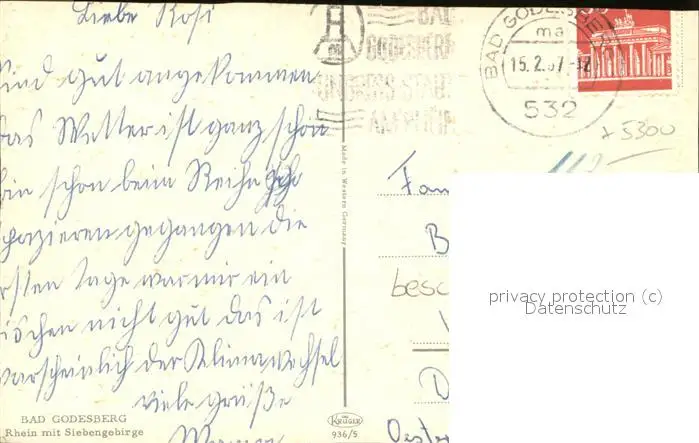 Liebe Rosi
Sind gut angekommen
das Wetter ist ganz schön
bin schon beim Reihn
spazieren gegangen die
ersten Tage war mir ein
bischen nicht gut das ist
warscheinlich der Klimawechsel
viele grüße
BAD GODESBERG
Rhein mit Siebengebirge
Made in Western Germany
KRÜGER
936/5
BAD
GODESBERG
UNSERE STADT
AM RHEIN
BAD GODESBERG
ma
15.2.67-17
532
x 5300
Fam
B
besc
D
Oester
privacy protection (c)
Datenschutz